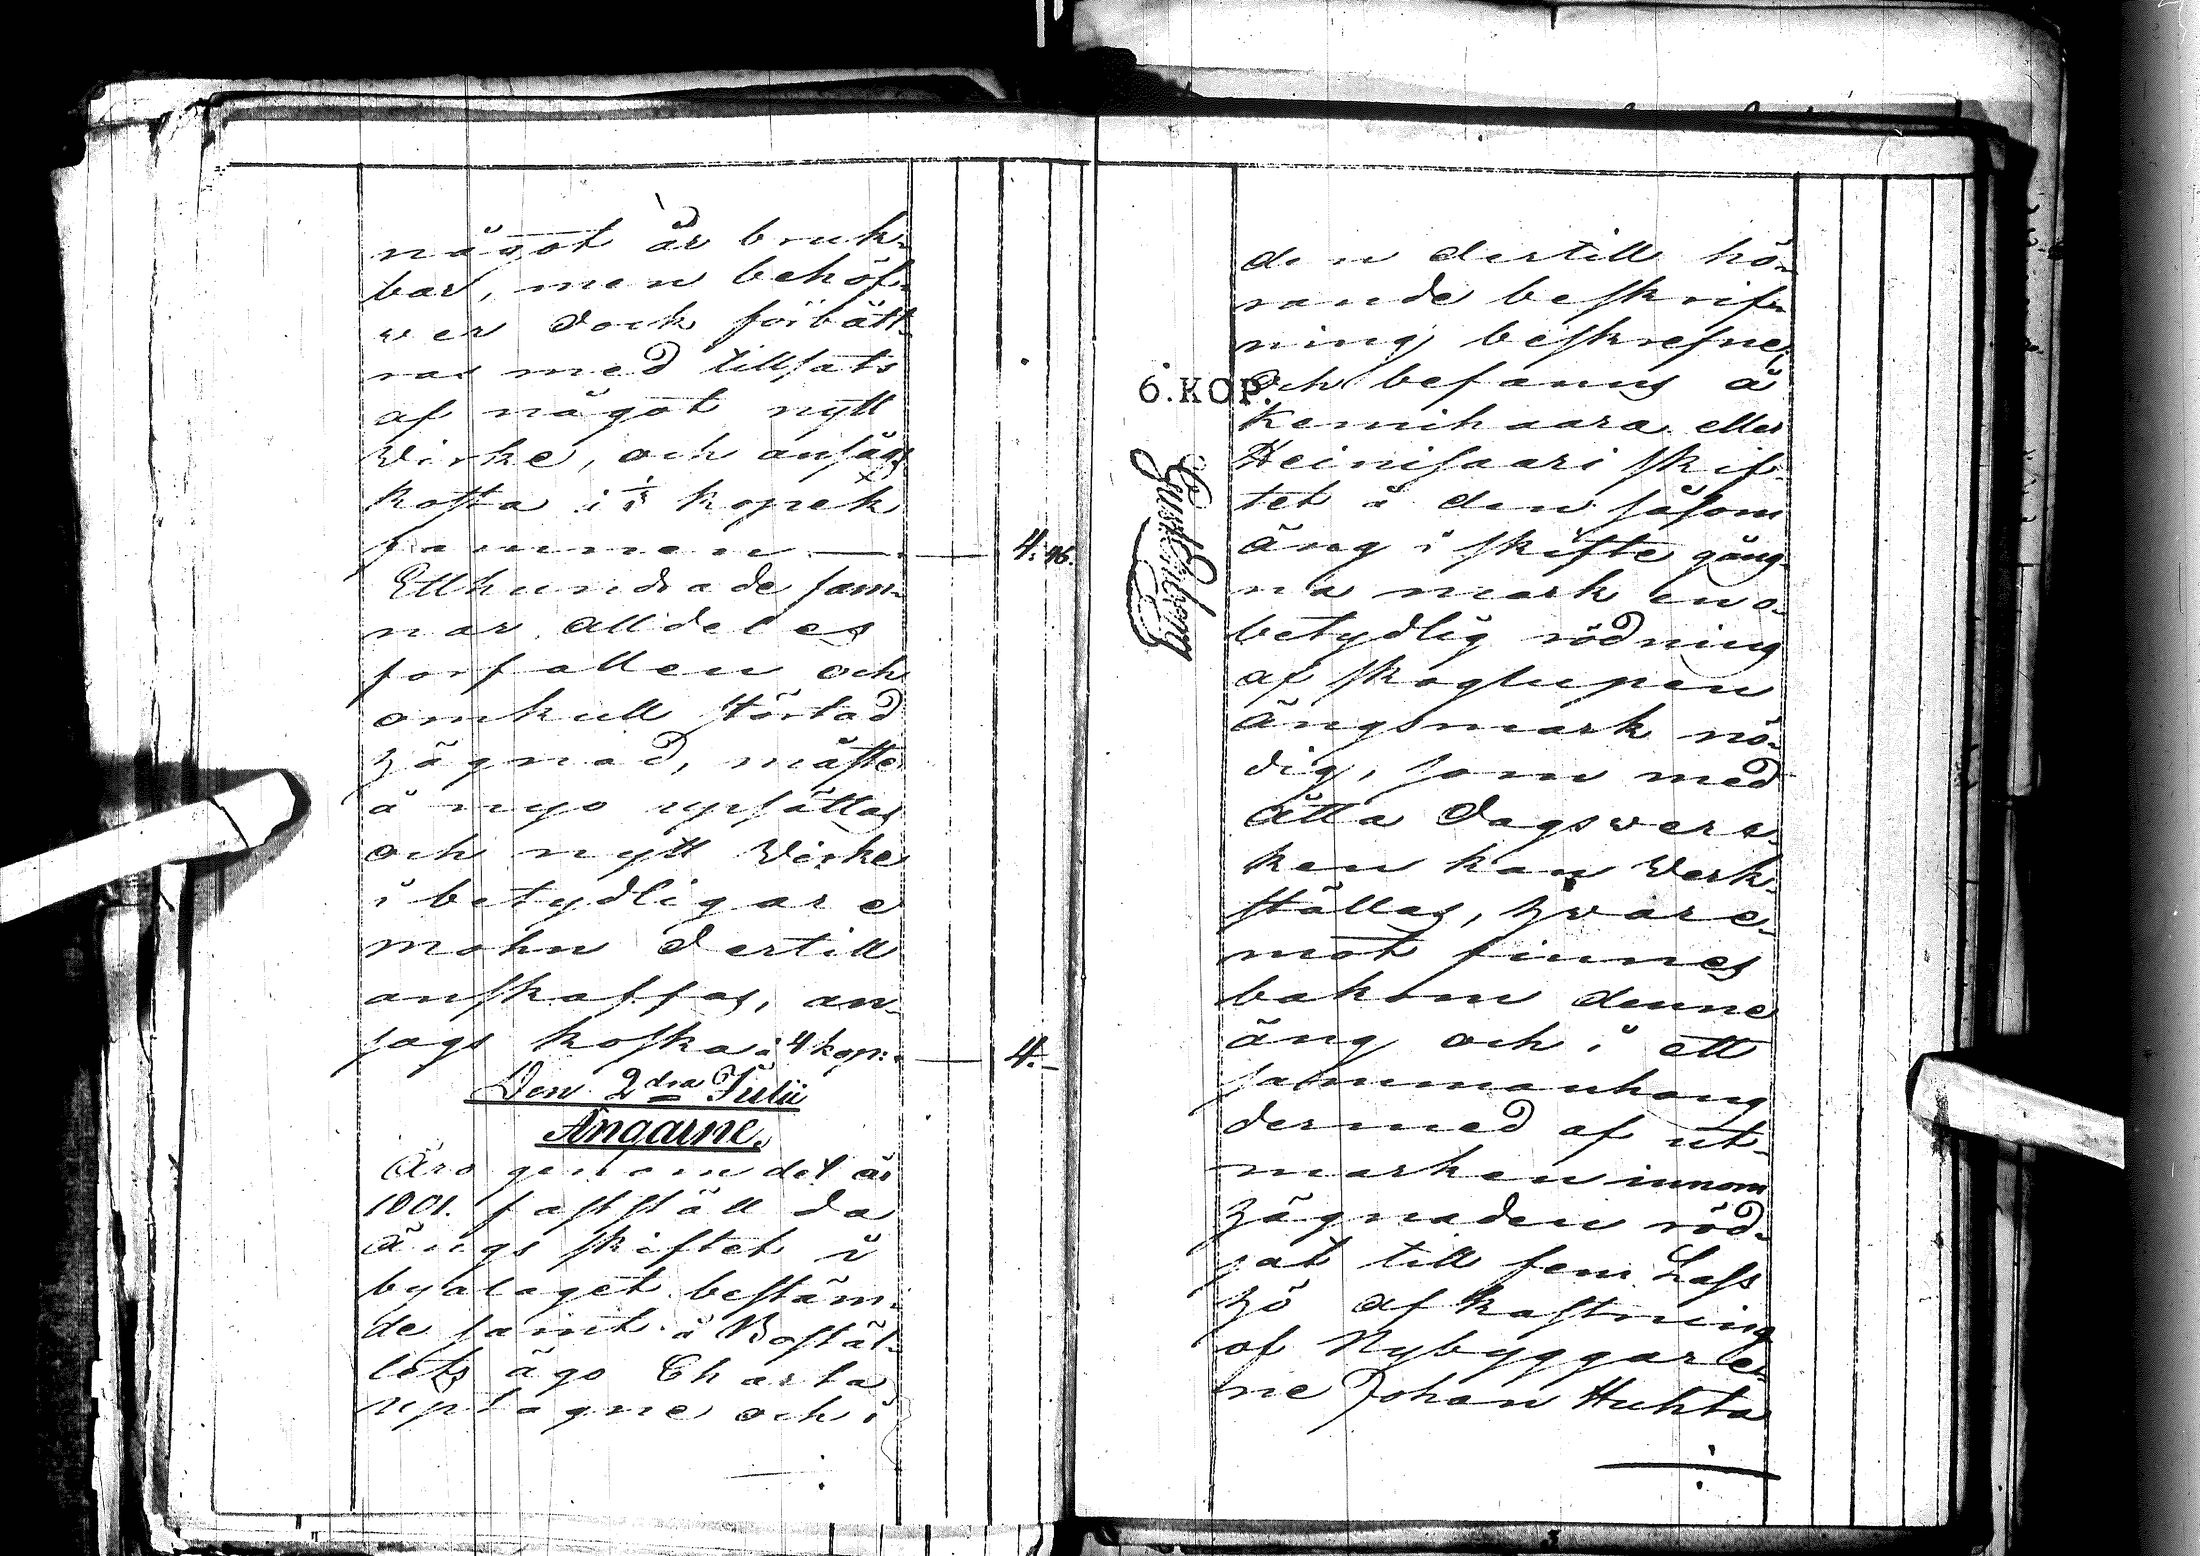 något är bruk-
bar, men behöf-
wer dock förbätt-
ras med tillsats
af något nytt
Wirke, och ansågs
kosta i kopek
famnen — 4: 46.
Etthundrade fam-
nar alldeles
forfallen och
omkull störtad
hägnad, måste
å nyo upsättas
och nytt Wirke
i betydligare
mohn dertill
anskaffas, an-
sags koska à 4 kop: — 4.-
Den 2dra Julii
Ängarne.
Äro genom det år
1801. fastställda
Ängs skiftet i
byalaget bestäm-
de samt å Bostäl-
lets ägo Charta
uptagne och i
den dertill hö-
rande beskrif-
ning beskrefne,
6.KOP.
och befanns å
Kemihaara eller
Heinisaari skif-
tet å den såsom
äng i skifte gång-
na mark en o-
betydlig rödning
af skoglupen
ängsmark nö-
dig, som med
Åtta dagswer-
ken kan Werk-
ställas, hware-
mot finnes
bakom denne
äng och i ett
sammanhang
dermed af ut-
marken innom
hägnaden röd-
jat till fem Lass
hö afkastning
af Nybyggare-
ne Johan Huhta